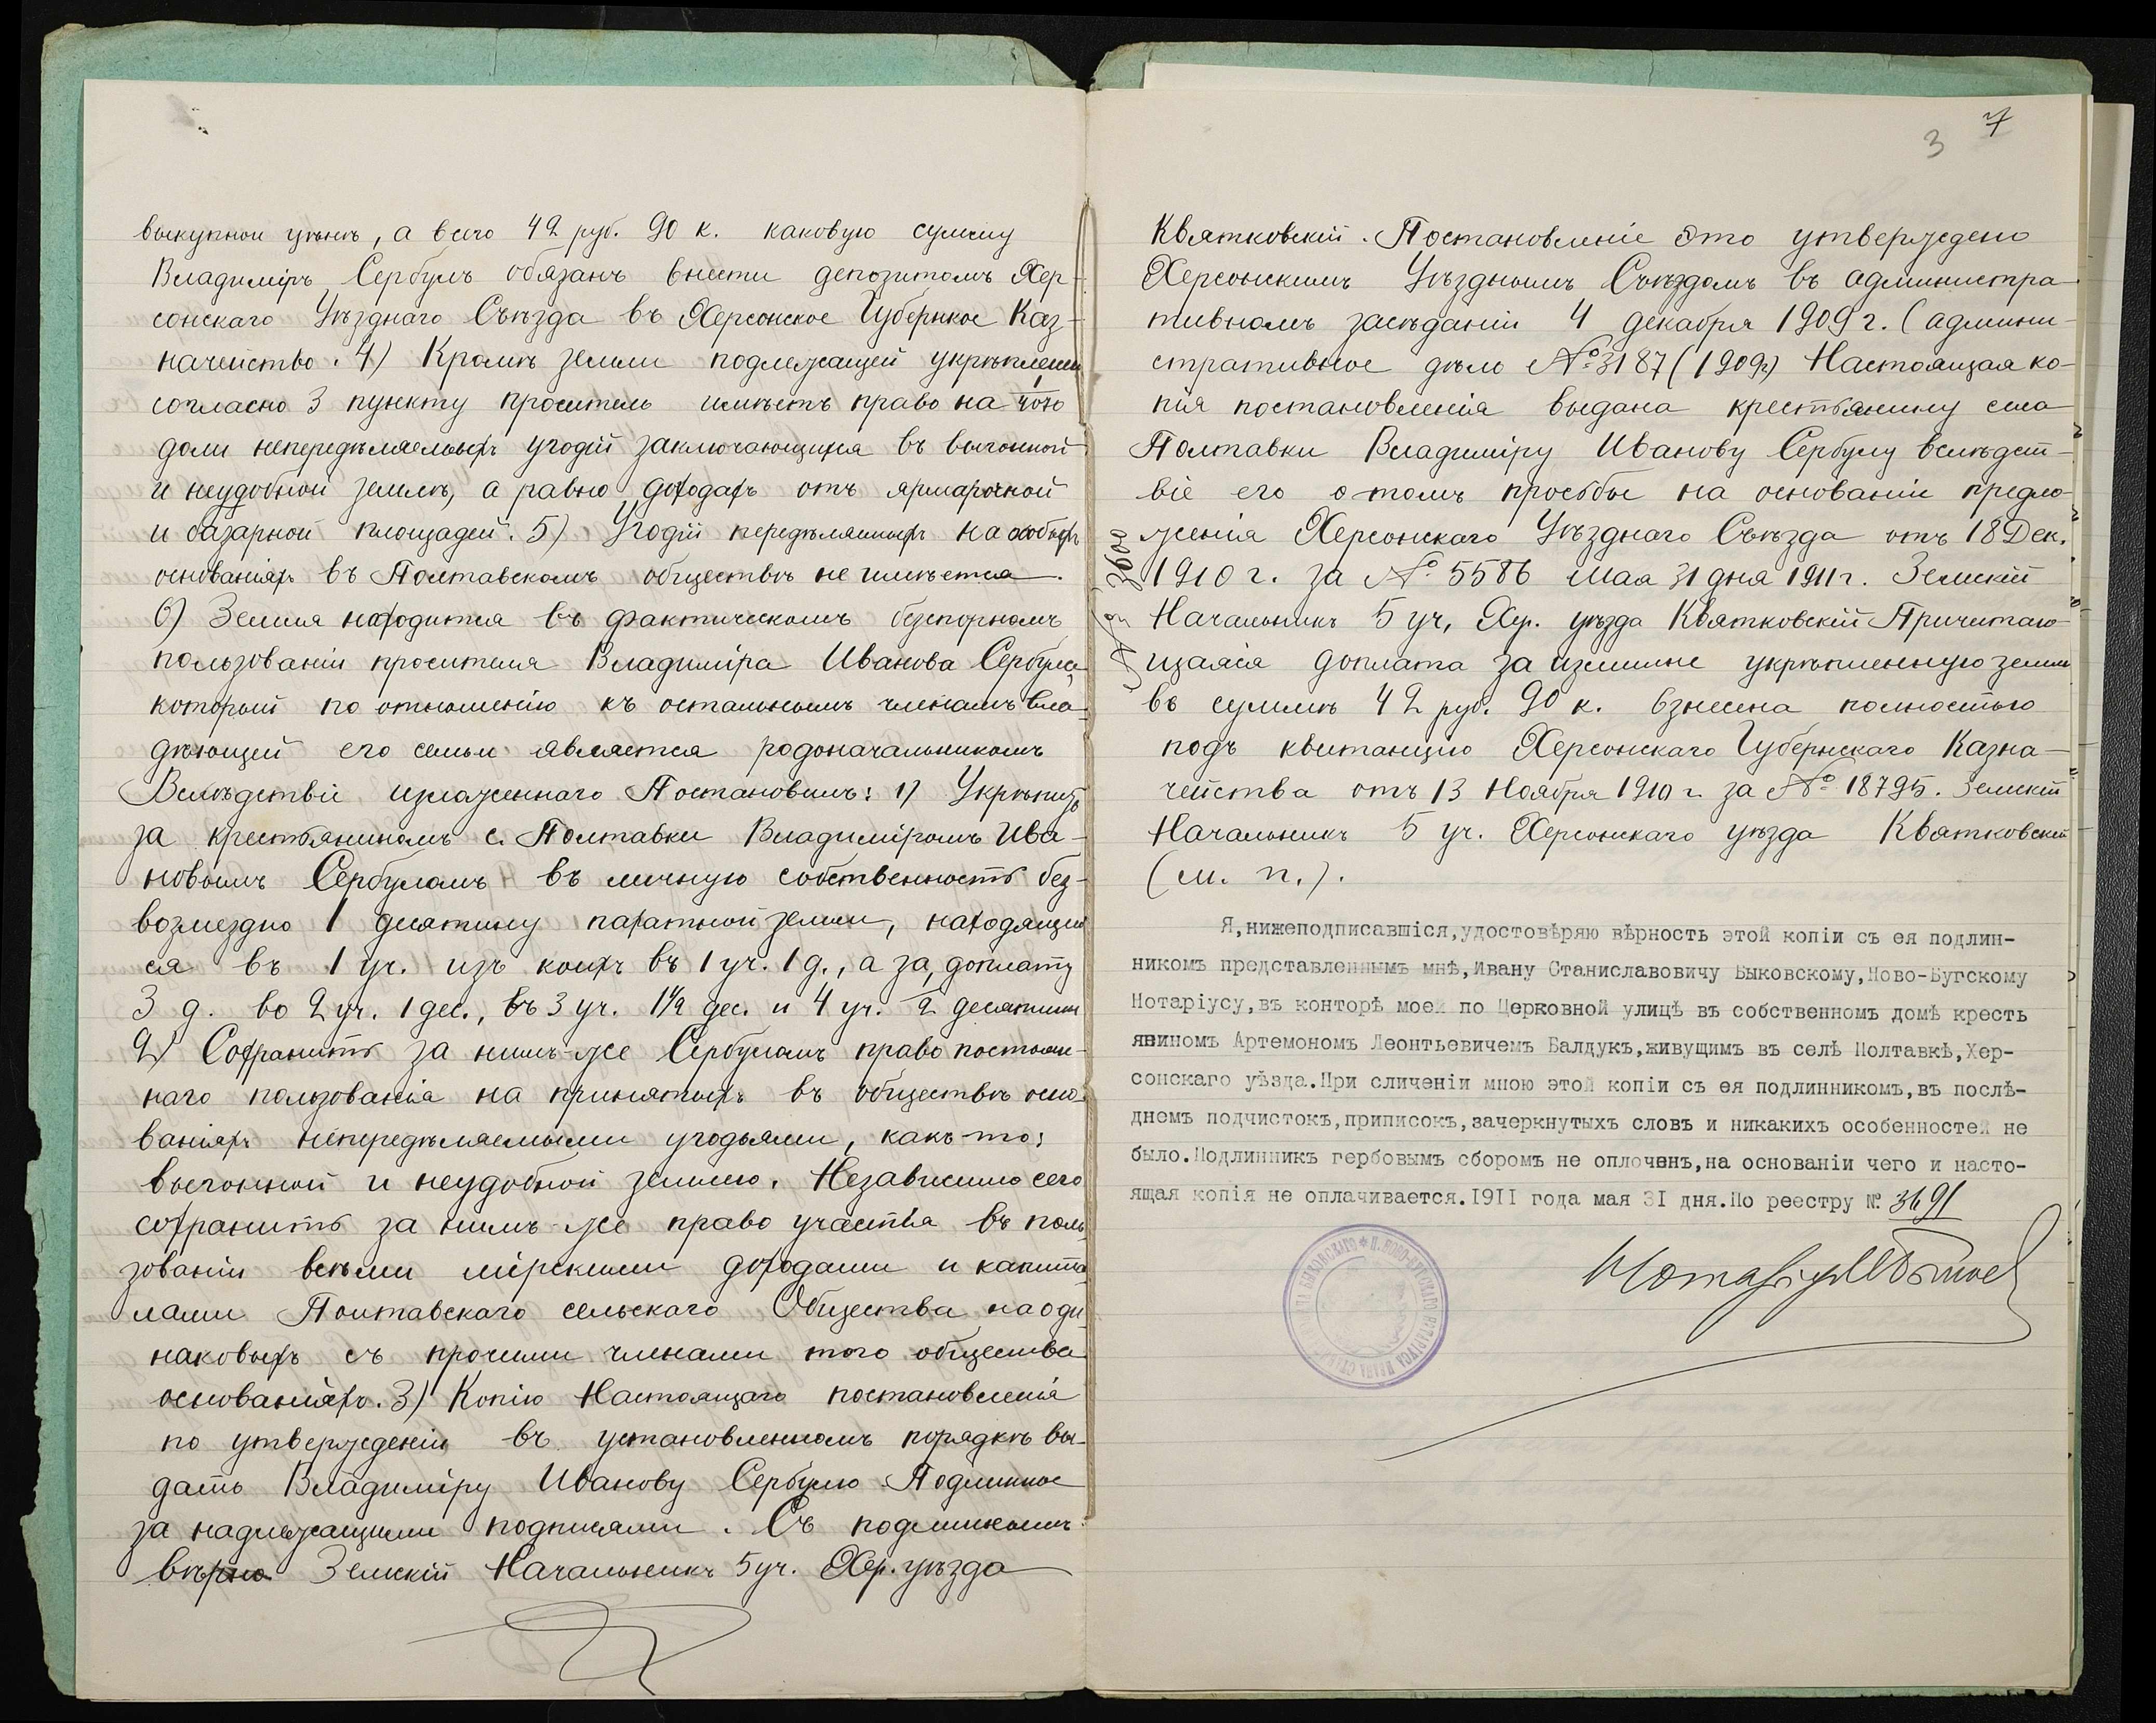 выкупной цѣнѣ, а всего 42 руб. 90 к. каковую сумму
Владиміръ Сербулъ обязанъ внести депозитомъ Хер-
сонскаго Уѣзднаго Съѣзда въ Херсонское Губернкое Каз-
начейство. 4) Кромѣ земли подлежащей укрѣпленію
согласно 3 пункту проситель имѣетъ право на
доли непередѣляемыхъ угодій заключающихся въ выгонной
и неудобной землѣ, а равно доходахъ отъ ярмарочной
и базарной площадей. 5) Угодій передѣляемыхъ на особыхъ
основаніяхъ въ Полтавскомъ обществѣ не имѣется.
6) Земля находится въ фактическомъ безспорномъ
пользованіи просителя Владиміра Иванова Сербула,
который по отношенію къ остальнымъ членамъ вла-
дѣющей его семьи является родоначальникомъ
Вслѣдствіе изложеннаго Постановилъ: 1) Укрѣпить
за крестьяниномъ с. Полтавки Владиміромъ Ива-
новымъ Сербуломъ въ личную собственность без-
возмездно 1 десятину пахатной земли, находящей
ся въ 1 уч. изъ коихъ въ 1 уч. 1 д., а за доплату
3 д. во 2 уч. 1 дес., въ 3 уч. 1½ дес. и 4 уч. ½ десятины
2) Сохранить за нимъ-же Сербуломъ право постоян-
наго пользованія на принятыхъ въ обществѣ осно-
ваніяхъ непередѣляемыми угодьями, какъ-то:
выгонной и неудобной землею. Независимо сего
сохранить за нимъ-же право участія въ поль
зованіи всѣми мірскими доходами и капита
лами Полтавскаго сельскаго Общества на оди
наковыхъ съ прочими членами того общества
основаніяхъ. 3) Копію Настоящаго постановленія
по утвержденіи въ установленномъ порядкѣ вы-
дать Владиміру Иванову Сербулю Подлинное
за надлежащими подписями. Съ подлиннымъ
вѣрно Земскій Начальникъ 5 уч. Хер. уѣзда
3 7
Квятковскій. Постановленіе это утверждено
Херсонскимъ Уѣзднымъ Съѣздомъ въ администра
тивномъ засѣданіи 4 декабря 1909 г. (админи-
стративное дѣло № 3187 (1909г.) Настоящая ко-
пія постановленія выдана крестьянину села
Полтавки Владиміру Иванову Сербулу вслѣдст-
віе его о томъ просьбы на основаніи предло-
женія Херсонскаго Уѣзднаго Съѣзда отъ 18 Дек.
1910 г. за № 5586 Мая 31 дня 1911 г. Земскій
Начальникъ 5 уч. Хер. уѣзда Квятковскій Причитаю-
щаяся доплата за излишне укрѣпленную землю
въ суммѣ 42 руб. 90 к. взнесена полностью
подъ квитанцію Херсонскаго Губернскаго Казна-
чейства отъ 13 Ноября 1910 г. за № 18795. Земскій
Начальникъ 5 уч. Херсонскаго уѣзда Квятковскій
(м. п.).
Я,нижеподписавшіся,удостовѣряю вѣрность этой копіи съ ея подлин-
никомъ представленнымъ мнѣ,Ивану Станиславовичу Быковскому,Ново-Бугскому
Нотаріусу,въ конторѣ моей по Церковной улицѣ въ собственномъ домѣ кресть
яниномъ Артемономъ Леонтьевичемъ Балдукъ,живущимъ въ селѣ Полтавкѣ,Хер-
сонскаго уѣзда.При сличеніи мною этой копіи съ ея подлинникомъ,въ послѣ-
днемъ подчистокъ,приписокъ,зачеркнутыхъ словъ и никакихъ особенностей не
было.Подлинникъ гербовымъ сборомъ не оплоченъ,на основаніи чего и насто-
ящая копія не оплачивается.1911 года мая 31 дня.По реестру № 3691
Нотаріусъ